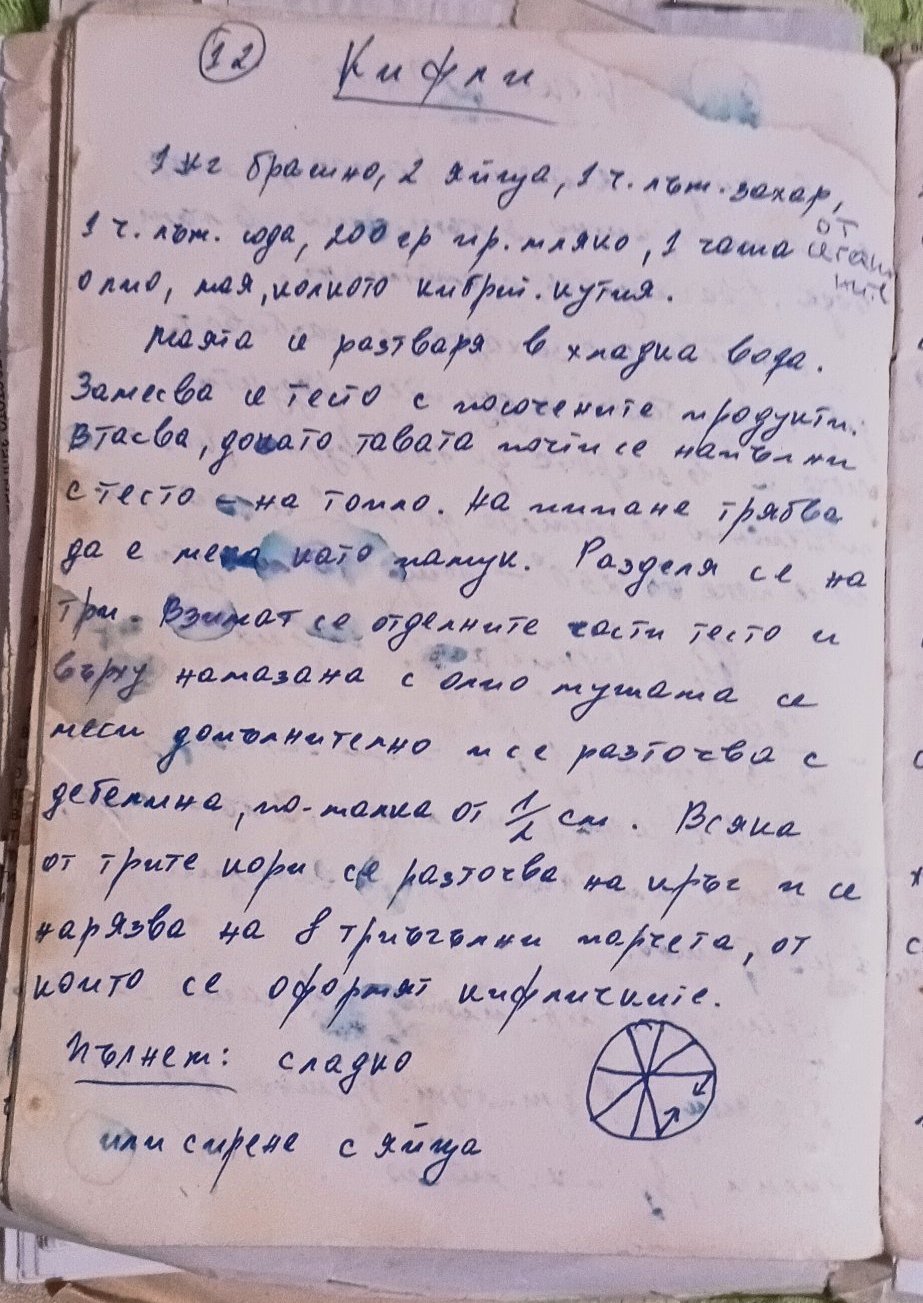 12 Кифли
1 кг брашно, 2 яйца, 1 ч. лъж. захар,
1 ч. лъж. сода, 200 гр пр. мляко, 1 чаша от
олио, мая, колкото кибрит. кутия.
Маята се разтваря в хладка вода.
Замесва се тесто с посочените продукти.
Втасва, докато тавата почти се напълни
с тесто – на топло. На пипане трябва
да е мека като памук. Разделя се на
три. Взимат се отделните части тесто и
върху намазана с олио мушама се
меси допълнително и се разточва с
дебелина, по-малка от 1/2 см. Всяка
от трите кори се разточва на кръг и се
нарязва на 8 триъгълни парчета, от
които се оформят кифличките.
Пълнеж: сладко
или сирене с яйца